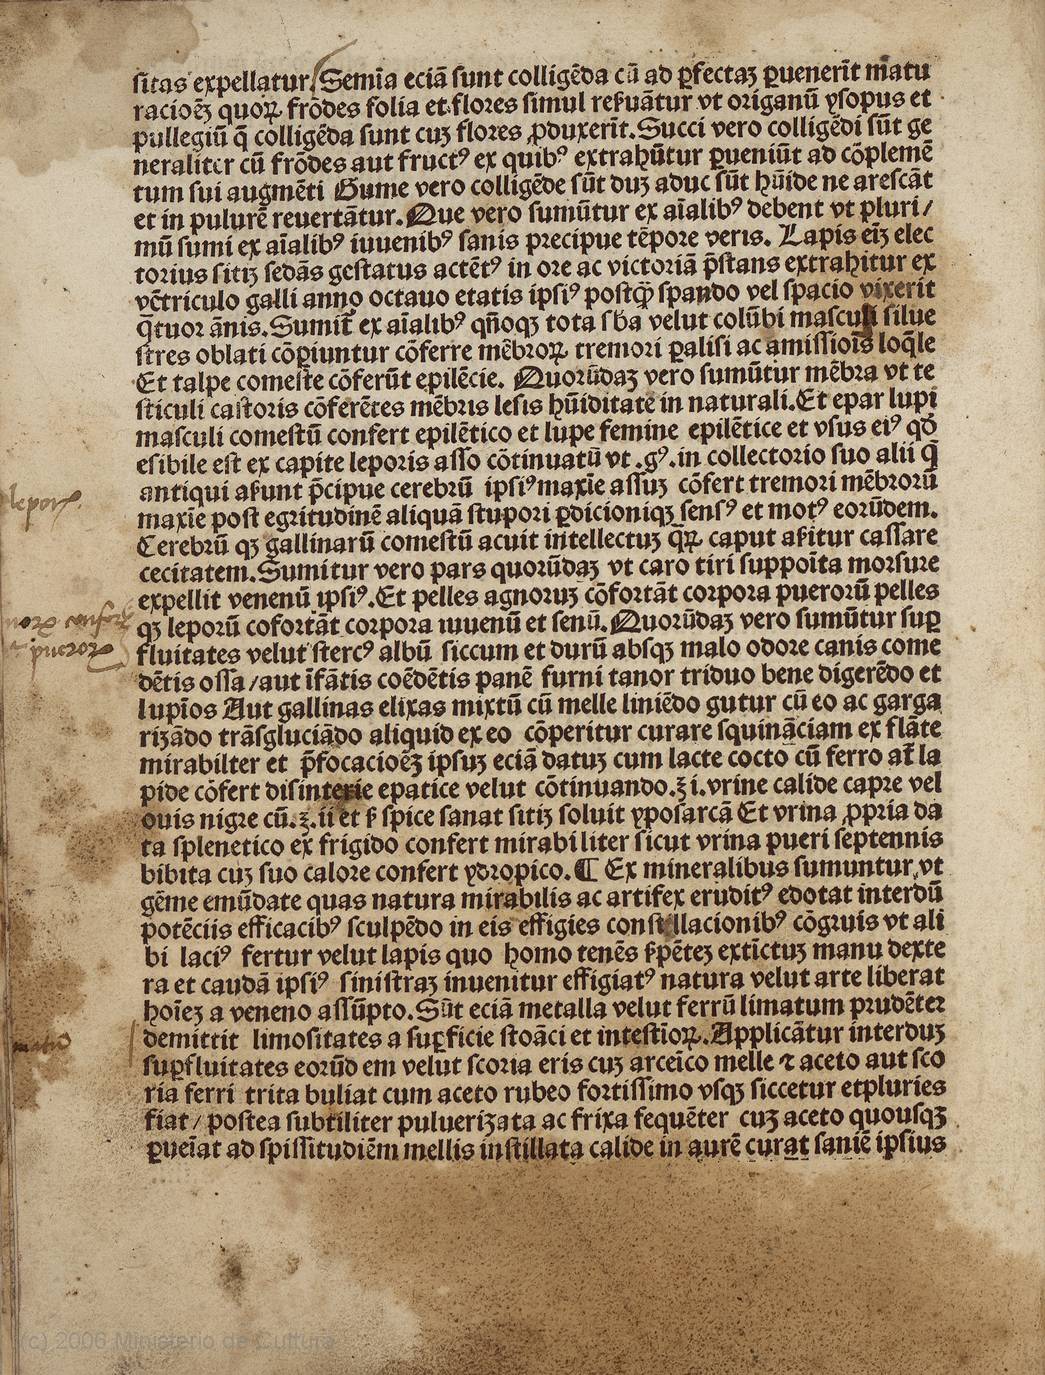 sitas expellatur. Semīa eciā sunt colligēda cū ad ꝑfectaȝ ꝑuenerīt matu
racioēȝ quoꝝ frōdes folia et flores simul reẜuātur vt origanū ysopus et
pullegiū q̄ colligēda sunt cuȝ flores ꝓduxerīt. Succi vero colligēdi sūt ge
neraliter cū frōdes aut fructꝰ ex quibꝰ extrahūtur ꝑueniūt ad cōplemē
tum sui augmēti Gume vero colligēde sūt duȝ aduc sūt hūide ne arescāt
et in puluerē reuertātur. Que vero sumūtur ex aīalibꝰ debent vt pluri/
mū sumi ex aīalibꝰ iuuenibꝰ sanis precipue tēpore veris. Lapis eīȝ elec
torius sitiȝ sedās gestatus actētꝰ in ore ac victoriā p̄stans extrahitur ex
vētriculo galli anno octauo etatis ipsiꝰ postꝙ̄ spando vel spacio vixerit
q̄tuor ānis. Sumit̄ ex aīalibꝰ qn̄oqȝ tota sba velut colūbi masculi silue
stres oblati cōꝑiuntur cōferre mēbroꝝ tremori ꝑalisi ac amissiōis loq̄le
Et talpe comeste cōferūt epilēcie. Quorūdaȝ vero sumūtur mēbra vt te
sticuli castoris cōferētes mēbris lesis hūiditate in naturali. Et epar lupi
masculi comestū confert epilētico et lupe femine epilētice et vsus eiꝰ qd̄
esibile est ex capite leporis asso cōtinuatū vt .gꝰ. in collectorio suo alii q̄
antiqui aẜunt p̄cipue cerebrū ipsiꝰ maxīe assuȝ cōfert tremori mēbrorū
maxīe post egritudinē aliquā stupori ꝑdicioniqȝ sensꝰ et motꝰ eorūdem.
Cerebrū qȝ gallinarū comestū acuit intellectuȝ q̄ꝝ caput aẜitur cassare
cecitatem. Sumitur vero pars quorūdaȝ vt caro tiri suppoīta morsure
expellit venenū ipsiꝰ. Et pelles agnoruȝ cōfortāt corpora puerorū pelles
qȝ leporū cofortāt corpora iuuenū et senū. Quorūdaȝ vero sumūtur suꝑ
fluitates velut stercꝰ albū siccum et durū absqȝ malo odore canis come
dētis ossa/aut īfātis coēdētis panē furni tanor triduo bene digerēdo et
lupīos Aut gallinas elixas mixtū cū melle liniēdo gutur cū eo ac garga
rizādo trāsgluciādo aliquid ex eo cōperitur curare squināciam ex flāte
mirabilter et p̄focacioēȝ ipsuȝ eciā datuȝ cum lacte cocto cū ferro at̄ la
pide cōfert disinterie epatice velut cōtinuando. ℥ i. vrine calide capre vel
ouis nigre cū. ℥. ii et ẜ spice sanat sitiȝ soluit yposarcā Et vrina ꝓpria da
ta splenetico ex frigido confert mirabiliter sicut vrina pueri septennis
bibita cuȝ suo calore confert ydropico. ¶ Ex mineralibus sumuntur, vt
gēme emūdate quas natura mirabilis ac artifex eruditꝰ edotat interdū
potēciis efficacibꝰ sculpēdo in eis effigies constillacionibꝰ cōgruis vt ali
bi laciꝰ fertur velut lapis quo homo tenēs ẜpēteȝ extīctuȝ manu dexte
ra et caudā ipsiꝰ sinistraȝ inuenitur effigiatꝰ natura velut arte liberat
hoīeȝ a veneno assūpto. Sūt eciā metalla velut ferrū limatum prudēter
demittit limositates a suꝑficie stoāci et intestīoꝝ. Applicātur interduȝ
suꝑfluitates eorūd em velut scoria eris cuȝ arceīco melle ⁊ aceto aut sco
ria ferri trita buliat cum aceto rubeo fortissimo vsqȝ siccetur etpluries
fiat/ postea subtiliter puluerizata ac frixa fequēter cuȝ aceto quousqȝ
ꝑueīat ad spissitudiēm mellis instillata calide in aurē curat saniē ipsius
lepor
puerorꝝ
(c) 2006 Ministerio de Cultura